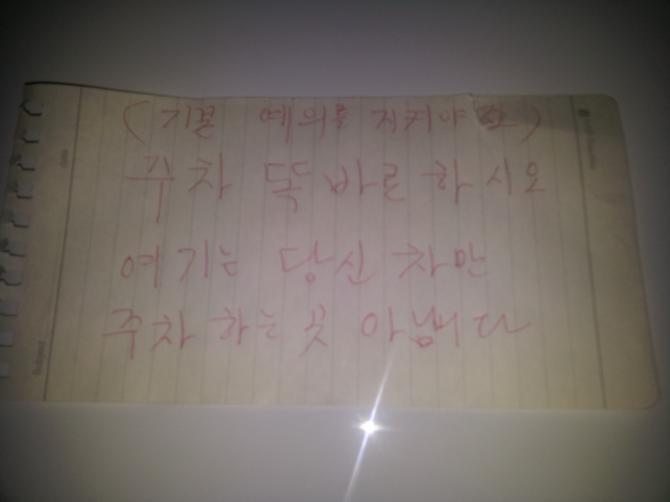 (기본 예의를 지켜야
주차 똑바로 하시오
여기는 당신 차만
주차 하는 곳 아닙니다